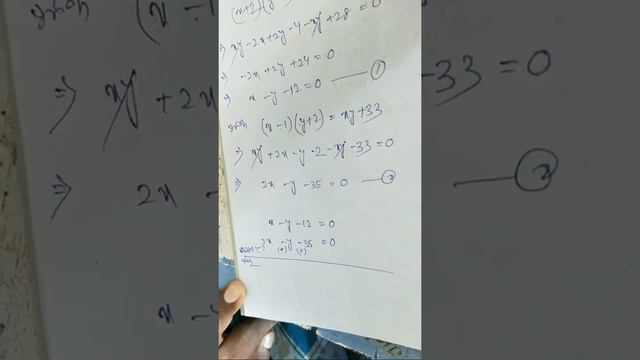 (x+2)(y
⇒ xy - 2x + 2y - 4 - xy + 28 = 0
⇒ -2x + 2y + 24 = 0
⇒ x - y - 12 = 0 —— ①
(x-1)(y+2) = xy + 33
⇒ xy + 2x - y - 2 - xy - 33 = 0
⇒ 2x - y - 35 = 0
x - y - 12 = 0
2x - y - 35 = 0
(-) (+) (+)